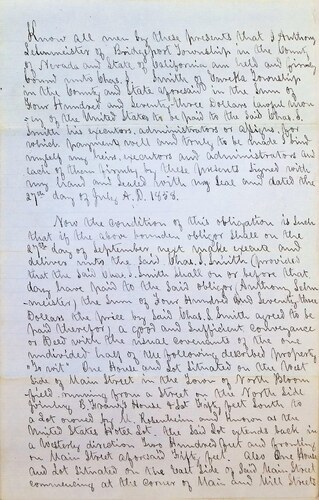 Know all men by these presents that I Anthony
Selmmeister of Bridgeport Township in the County
of Nevada and State of California am held and firmly
bound unto Chas. S. Smith of Township
in the County and State aforesaid in the Sum of
Four Hundred and Seventy-three Dollars lawful mon-
ey of the United States to be paid to the said Chas. S.
Smith his executors, administrators or assigns, for
which payment well and truly to be made I bind
myself my heirs, executors and administrators and
each of them firmly by these presents Signed with
my hand and Sealed with my Seal and dated the
27th day of July A.D. 1858.
Now the condition of this obligation is such
that if the above bounden obligor shall on the
27th day of September next make execute and
deliver unto the said Chas. S. Smith provided
that the said Chas. S. Smith shall on or before that
day have paid to the said obligor, Anthony Selm-
meister, the Sum of Four Hundred and Seventy-three
Dollars the price by said Chas. S. Smith agreed to be
paid therefor, a good and sufficient conveyance
or Deed with the usual covenants of the one
undivided half of the following described property
"To wit" One House and Lot Situated on the West
side of Main Street in the Town of North Bloom-
field running from a Street on the North Side
joining B. House & Lot Fifty feet South to
a Lot owned by M. Rosenheim and known as the
United States Hotel Lot, the said Lot extends back in
a Westerly direction Two Hundred feet and fronting
on Main Street aforesaid Fifty feet. Also One House
and Lot situated on the East Side of said Main Street
commencing at the Corner of Main and Mill Streets